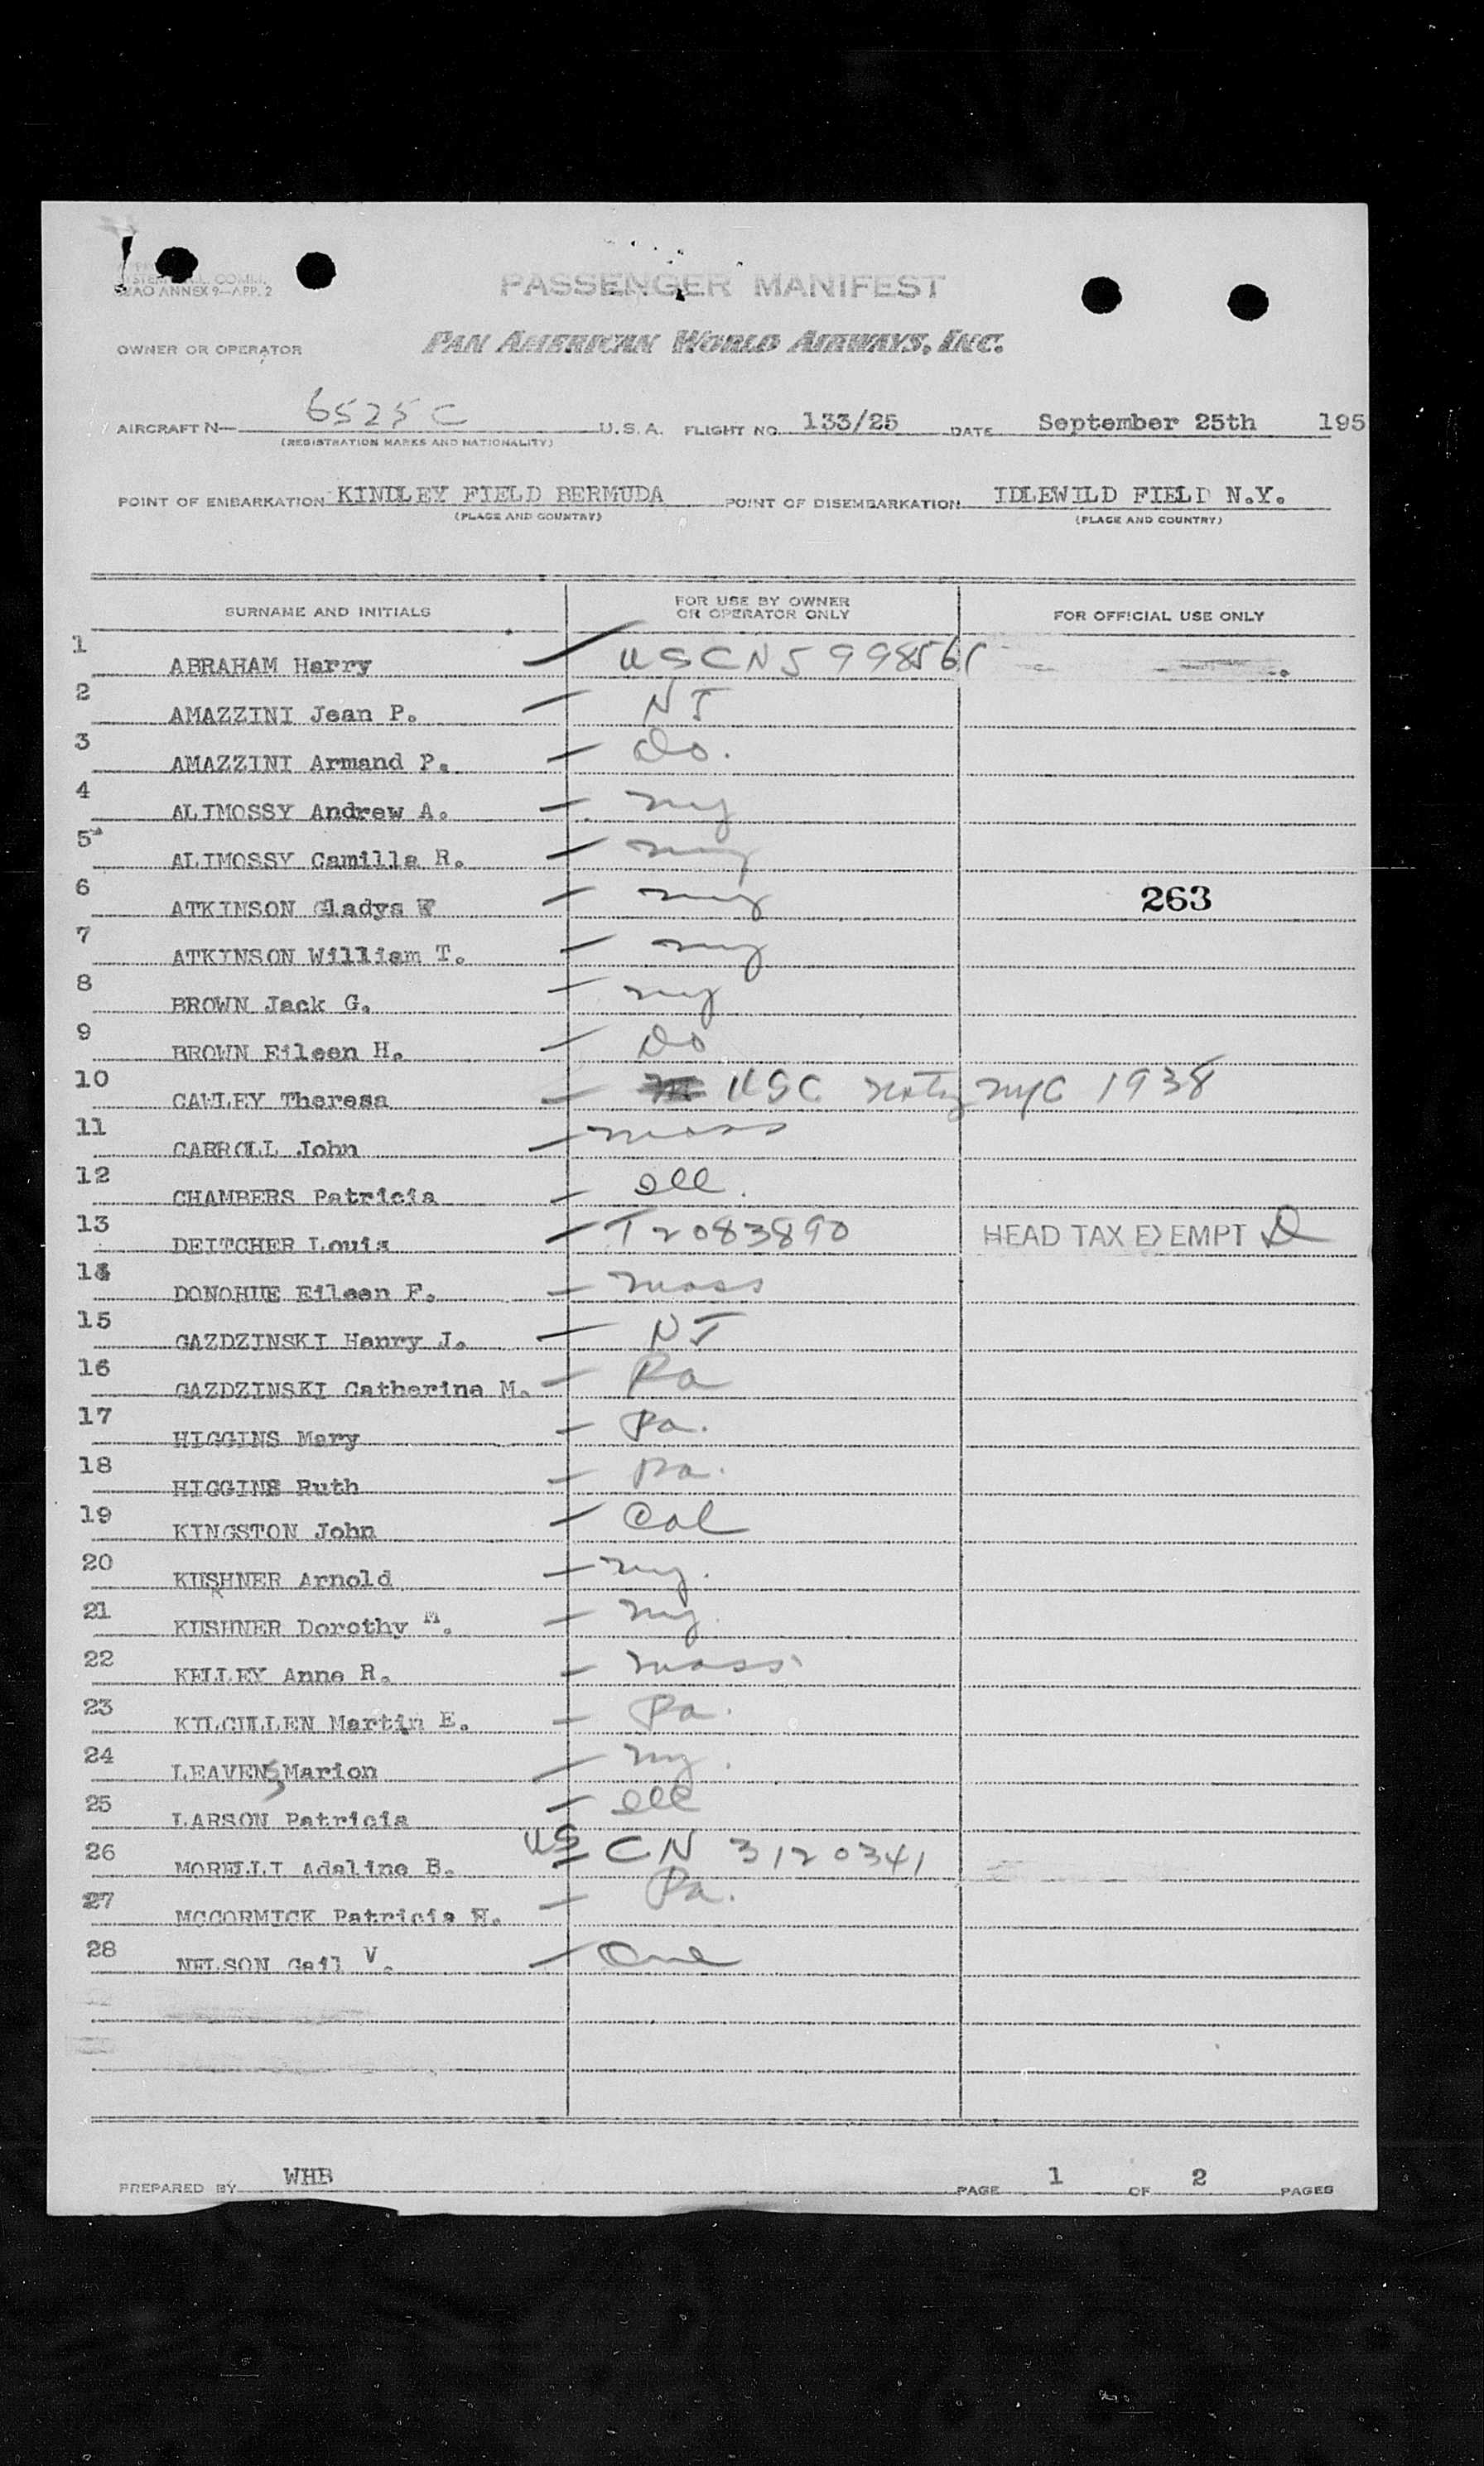 ICAO ANNEX 9—APP. 2
PASSENGER MANIFEST
OWNER OR OPERATOR PAN AMERICAN WORLD AIRWAYS, INC.
AIRCRAFT N— 6525C U.S.A. FLIGHT NO. 133/25 DATE September 25th 195
(REGISTRATION MARKS AND NATIONALITY)
POINT OF EMBARKATION KINDLEY FIELD BERMUDA POINT OF DISEMBARKATION IDLEWILD FIELD N.Y.
(PLACE AND COUNTRY) (PLACE AND COUNTRY)
SURNAME AND INITIALS FOR USE BY OWNER OR OPERATOR ONLY FOR OFFICIAL USE ONLY
1 ABRAHAM Harry USCN5998561
2 AMAZZINI Jean P. NJ
3 AMAZZINI Armand P. Do.
4 ALIMOSSY Andrew A. ny
5 ALIMOSSY Camille R. ny
6 ATKINSON Gladys W ny 263
7 ATKINSON William T. ny
8 BROWN Jack G. ny
9 BROWN Eileen H. Do
10 CAWLEY Theresa USC natz nyc 1938
11 CARROLL John mass
12 CHAMBERS Patricia Ill.
13 DEITCHER Louis T2083890 HEAD TAX EXEMPT D
14 DONOHUE Eileen F. mass
15 GAZDZINSKI Henry J. NJ
16 GAZDZINSKI Catherine M. Pa
17 HIGGINS Mary Pa.
18 HIGGINS Ruth Pa.
19 KINGSTON John Cal
20 KUSHNER Arnold ny.
21 KUSHNER Dorothy M. ny.
22 KELLEY Anne R. mass
23 KILCULLEN Martin E. Pa.
24 LEAVENS Marion ny.
25 LARSON Patricia Ill
26 MORELLI Adeline B. US CN 3120341
27 MCCORMICK Patricia H. Pa.
28 NELSON Gail V.
PREPARED BY WHB PAGE 1 OF 2 PAGES